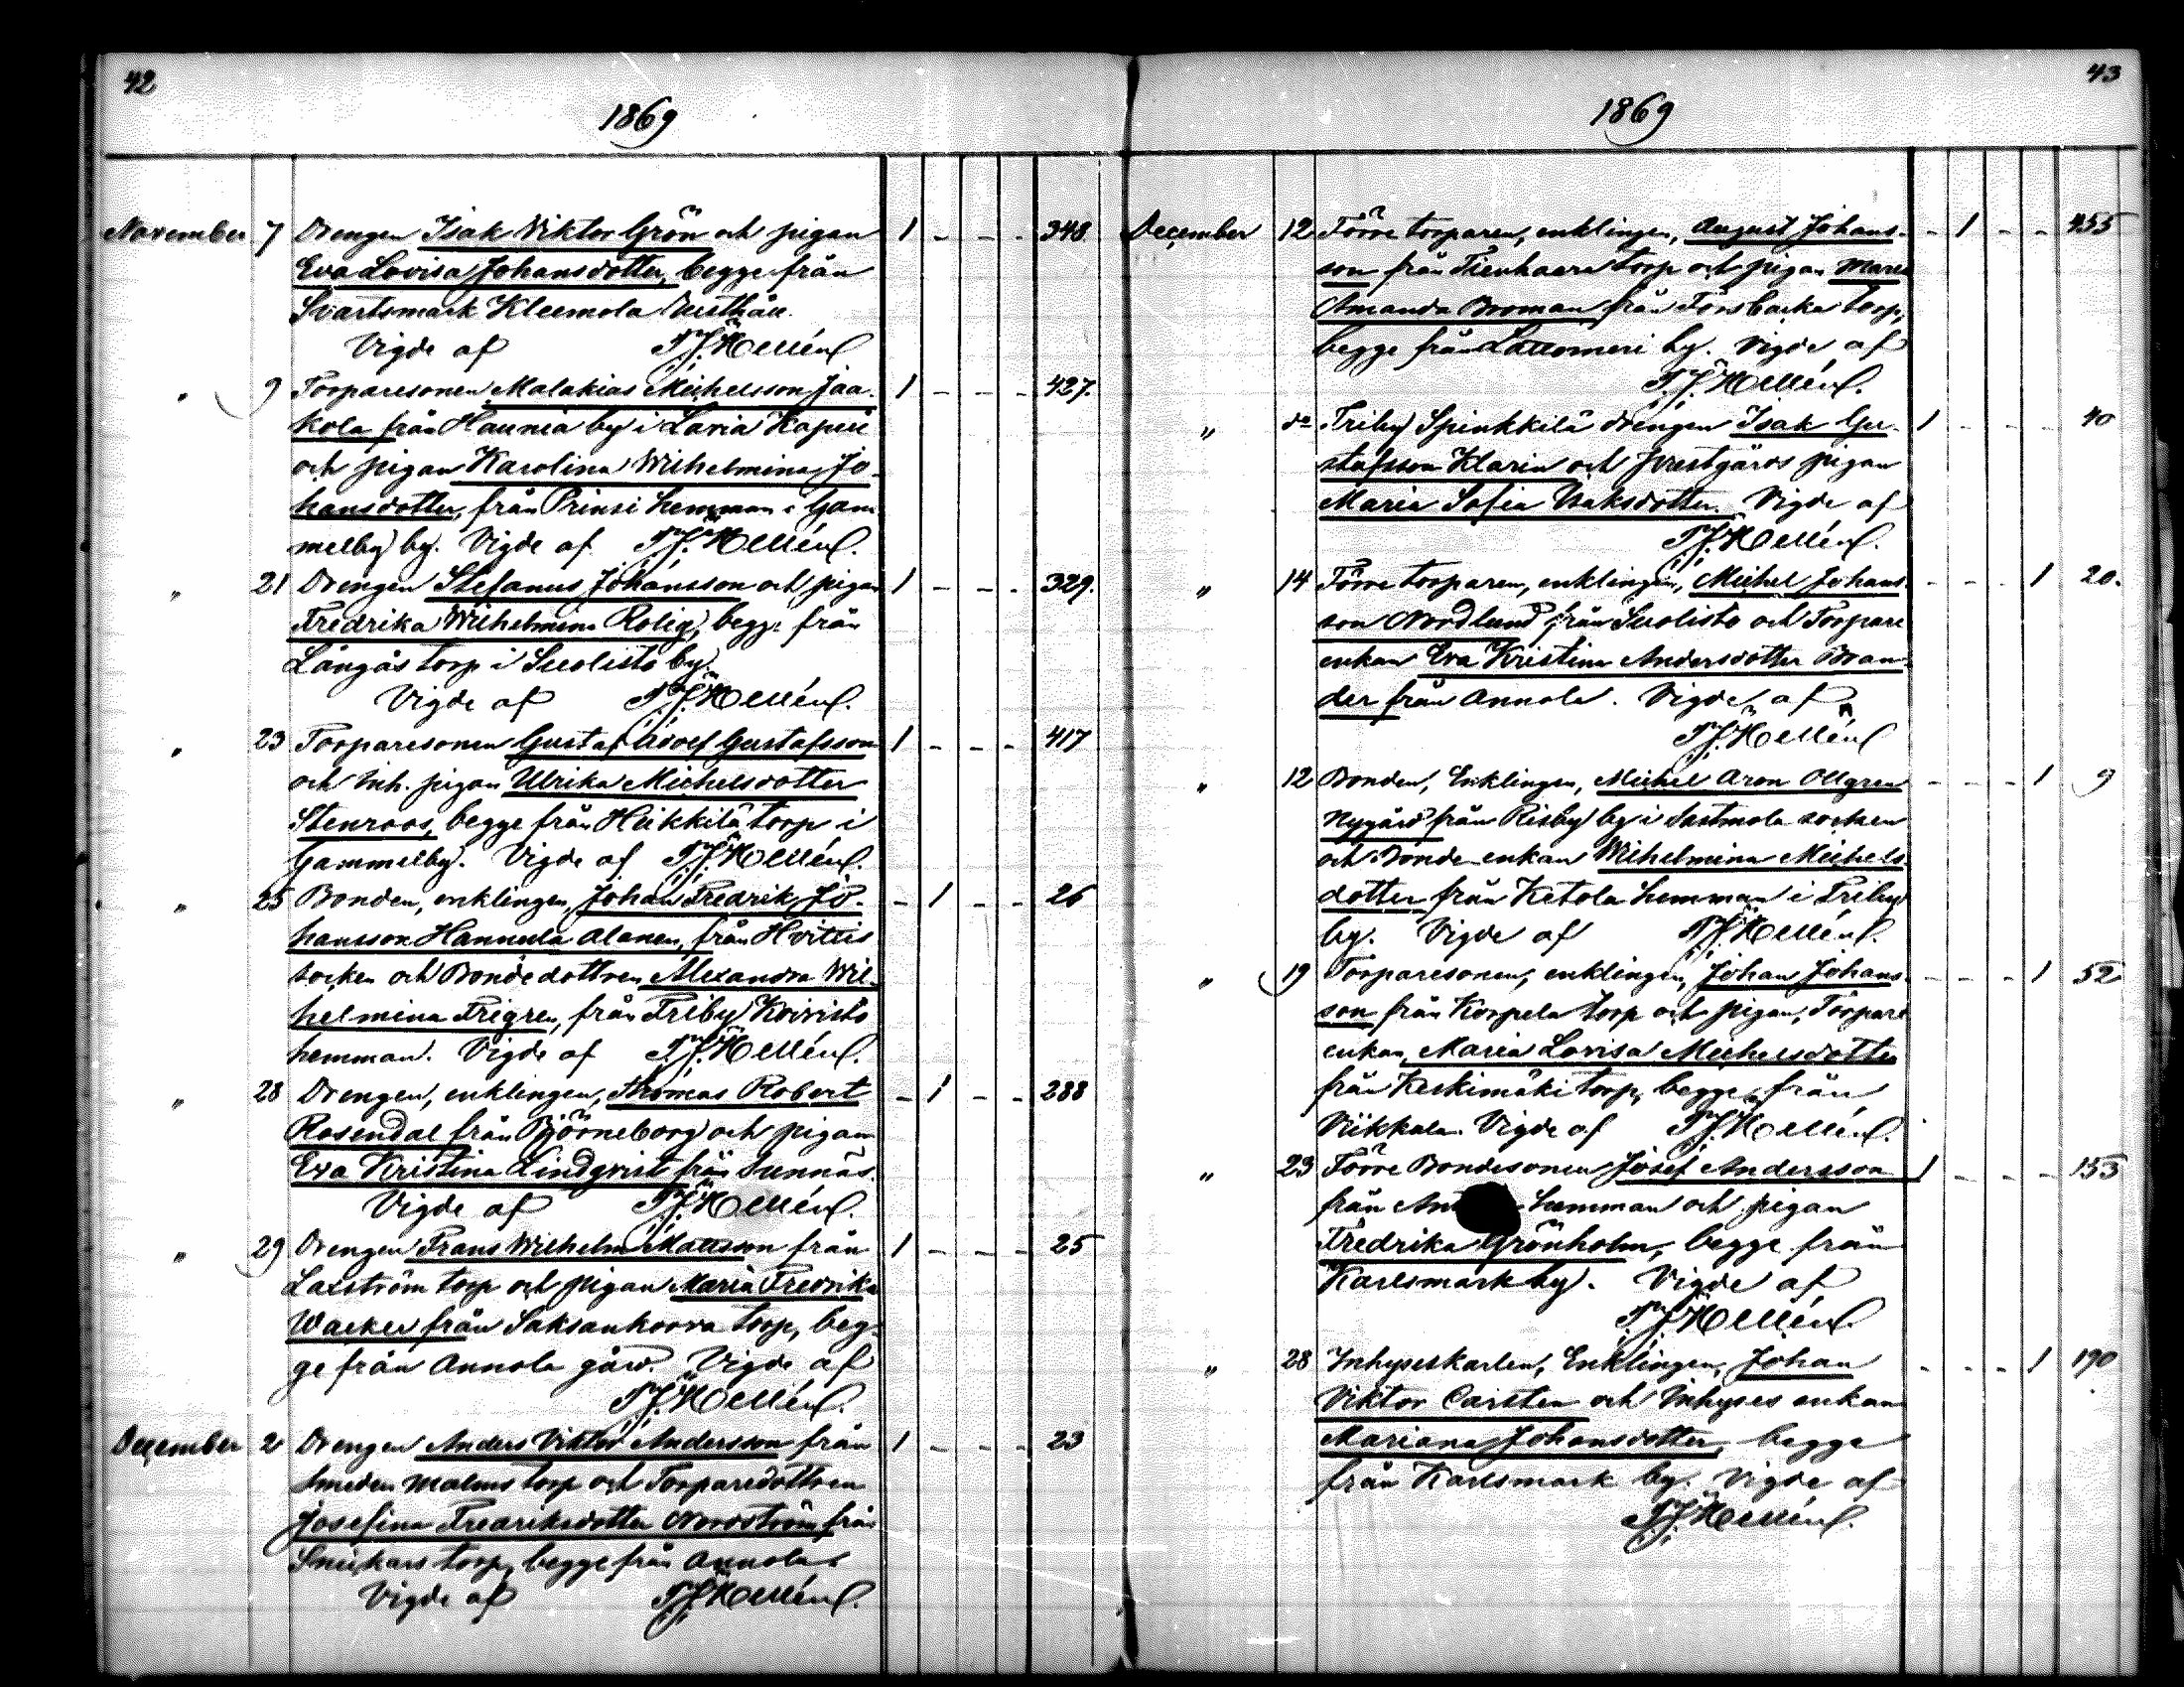 42
1869
November 7 Drengen Isak Viktor Grön och pigan 1 - - - 348
Eva Lovisa Johansdotter, begge från
Svartsmark Kleemola
Vigde af F.J. Hellén
" 9 Torparesonen Malakias Michelsson Jaa- 1 - - - 427.
kola från Haunia by i Lavia Kapell
och pigan Karolina Wilhelmina Jo-
hansdotter, från Prinsi hemman i Gam
melby by. Vigde af F.J. Hellén.
" 21 Drengen Stefanus Johansson och pigan 1 - - - 329.
Fredrika Wilhelmina Rolig, begge från
Långås torp i Suolisto by.
Vigde af F.J. Hellén.
" 23 Torparesonen Gustaf Adolf Gustafsson 1 - - - 417
och Inh. pigan Ulrika Michelsdotter
Stenroos, begge från Heikkilä torp i
Gammelby. Vigde af F.J. Hellén.
" 25 Bonden, enklingen, Johan Fredrik Jo- - 1 - - 26
hansson Hannula Alanen, från Hvittis
socken och Bondedottren Alexandra Wil-
helmina Frigren, från Friby Koivisto
hemman. Vigde af F.J. Hellén.
" 28 Drengen, enklingen, Thomas Robert - 1 - - 288
Rosendal från Björneborg och pigan
Eva Kristina Lindqvist från Sunnäs.
Vigde af F.J. Hellén.
" 29 Drengen Frans Wilhelm Mattsson från 1 - - - 25
Laxström torp och pigan Maria Fredrika
Wacker från Saksankorva torp, beg-
ge från Annola gård. Vigde af
F.J. Hellén.
December 2 Drengen Anders Viktor Andersson från 1 - - - 23
Smeden Malms torp och Torparedottren
Josefina Fredriksdotter Nordström från
Snickars torp, begge från Annola
Vigde af F.J. Hellén.
43
1869
December 12 Förre torparen, enklingen, August Johans- - 1 - - 455
son från Tienhaara torp och pigan Maria
Amanda Broman från Forsbacka torp,
begge från Lattomeri by. Vigde af
F.J. Hellén.
" do Friby Spinkkilä drengen Isak Gu- 1 - - - 40
stafsson Klarin och Prestgårds pigan
Maria Sofia Isaksdotter. Vigde af
F.J. Hellén.
" 14 Förre torparen, enklingen, Michel Johans- - - - 1 20.
son Nordlund från Suolisto och Torpare
enkan Eva Kristina Andersdotter Bran-
der från Annola. Vigde af
F.J. Hellén
" 12 Bonden, Enklingen, Michel Aron Ollgren - - - 1 9
Nygård från Risby by i Sastmola socken
och Bonde enkan Wilhelmina Michels-
dotter från Ketola hemman i Friby
by. Vigde af F.J. Hellén.
" 19 Torparesonen, enklingen, Johan Johans- - - - 1 52
son från Korpela torp och pigan, Torpare
enkan, Maria Lovisa Michelsdotter
från Keskimäki torp, begge från
Viikkala. Vigde af F.J. Hellén.
" 23 Förre Bondesonen Josef Andersson 1 - - - 153
från hemman och pigan
Fredrika Grönholm, begge från
Karlsmark by. Vigde af
F.J. Hellén.
" 28 Inhyseskarlen, Enklingen, Johan - - - 1 190
Viktor Carsten och Inhyses enkan
Mariana Johansdotter, begge
från Karlsmark by. Vigde af
F.J. Hellén.